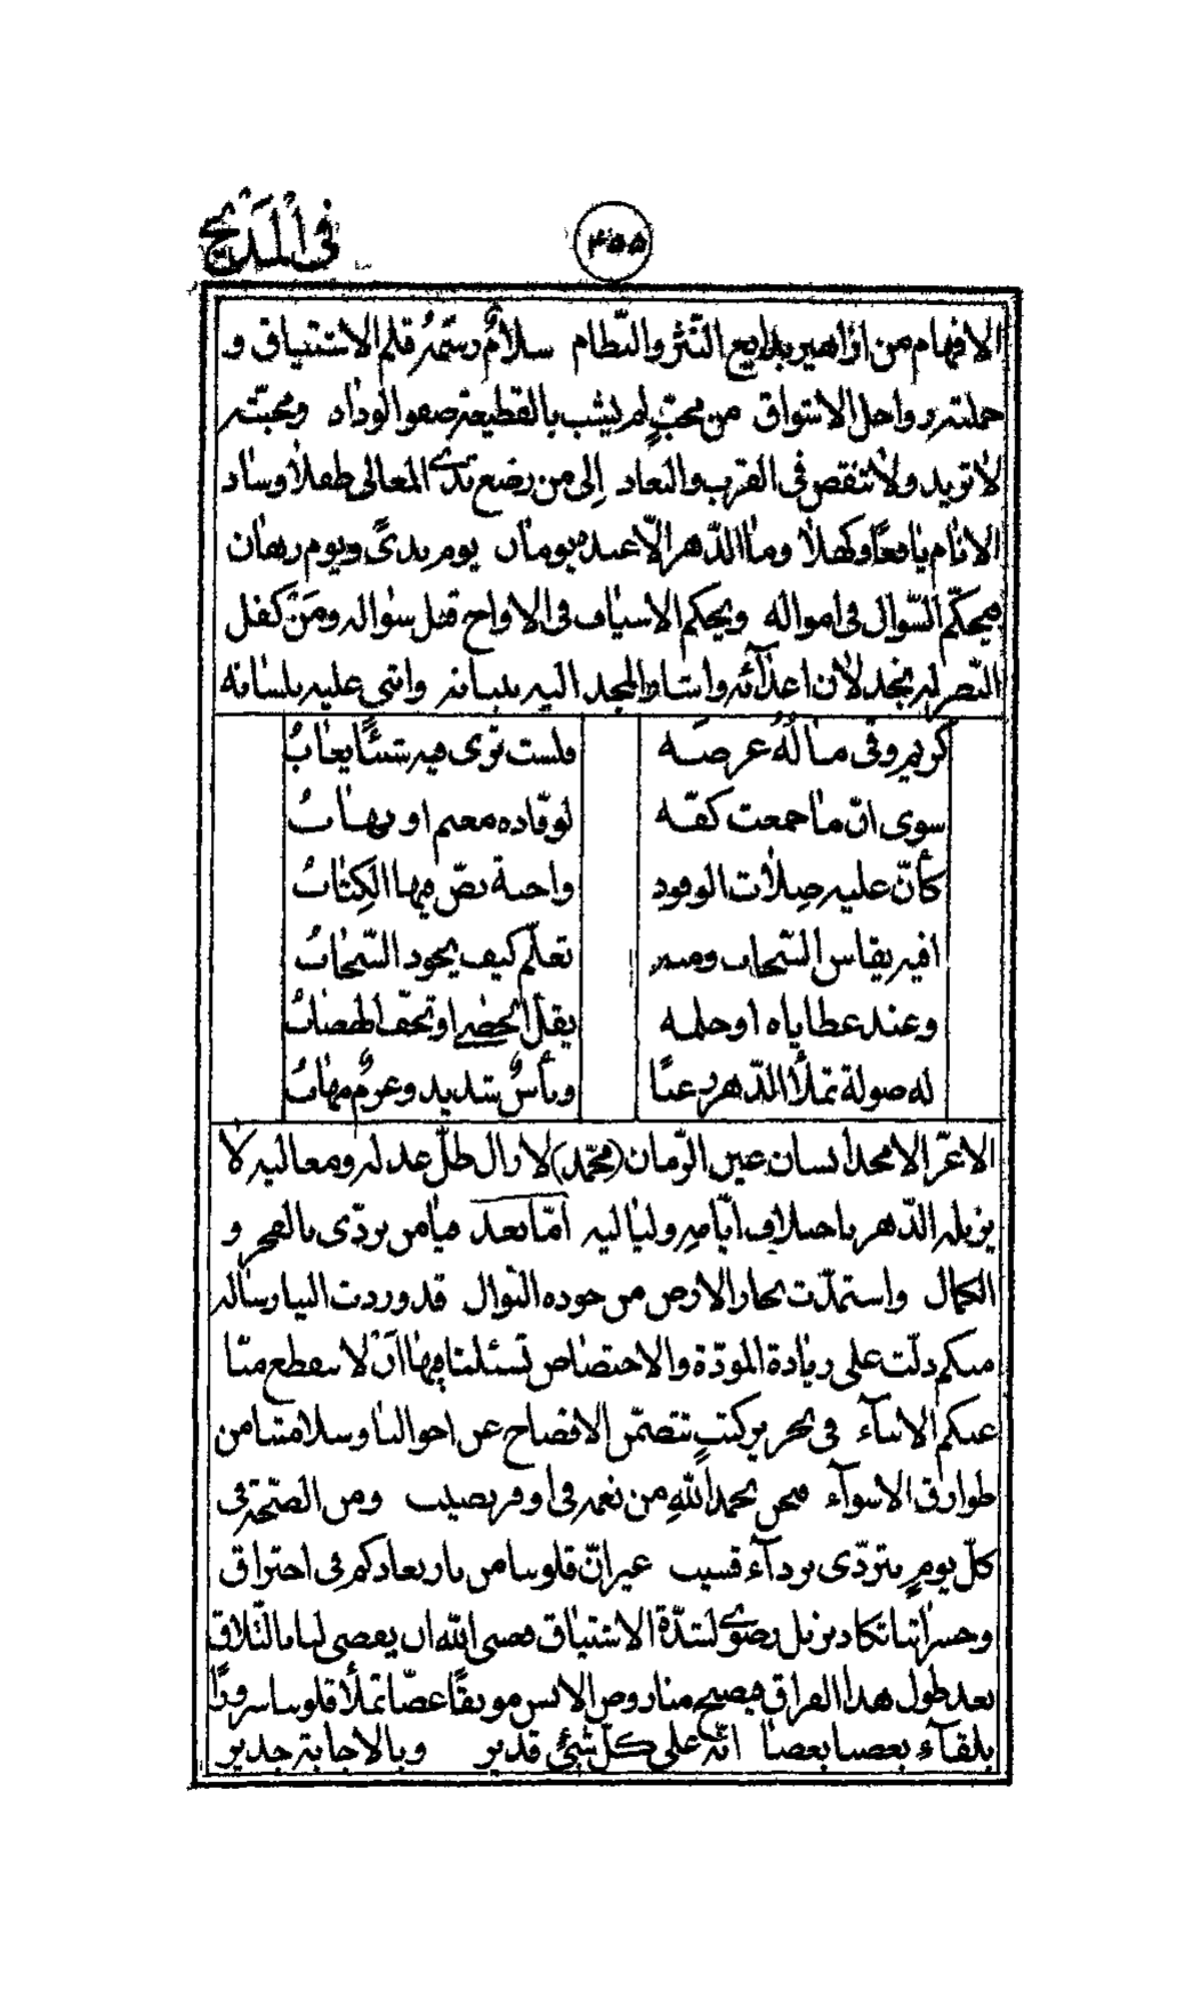 في المديح
٣٥٥
الافهام من ازاهير بدايع النّثر والنّظام سلامٌ رسَمَهُ قلم الاشتياق و
حملته رواحل الاشواق من محبٍّ لم يشب بالقطيعة صفو الوداد ومحبّته
لا تزيد ولا تنقص في القرب والبعاد إلى من رضع ثدى المعالى طفلا وساد
الانام يافعًا وكهلا وما الدّهر الّا عنده يومان يوم ندىً ويوم رهان
فيحكّم السّوال في امواله ويحكم الاسياف في الارواح قبل سواله ومَن كفل
النّصر له بخذلان اعدآئه واشار المجد اليه ببنانه واثنى عليه بلسانه
كريم وقى مالُهُ عرضَه فلست ترى فيه شيئًا يعابُ
سوى انّ ما جمعت كفّه لوفّاده مغنم او نهابُ
كأنّ عليه صِلات الوفود واجبة نصّ فيها الكِتابُ
افيه يقاس السّحاب ومنه تعلّم كيف يجود السّحابُ
وعند عطاياه او حلمه يقلّ الحصى او تخفّ الهضابُ
له صولة تملأ الدّهر رعبًا وبأسٌ شديد وعزمٌ مهابُ
الاعزّ الامجد انسان عين الزّمان (محمّد) لا زال ظلّ عدله ومعاليه لا
يزيله الدّهر باختلاف ايّامِه ولياليه امّا بعد فيا من تردّى بالفخر و
الكمال واستمدّت بحار الارض من جوده النّوال قد وردت الينا رساله
منكم دلّت على زيادة المودّة والاختصاص تسئلنا فيها اَنْ لا تنقطع منّا
عنكم الانبآء في تحرير كتبٍ تتضمّن الافصاح عن احوالنا وسلامتنا من
طوارق الاسوآء فنحن بحمد اللهِ من نعمه في اوفر نصيب ومن الصّحّة في
كلّ يومٍ نتردّى بردآء قشيب غير انّ قلوبنا من نار بعادكم في احتراق
وحسراتها تكاد تزيل رضوى لشدّة الاشتياق فعسى الله ان يقضى لنا بالتّلاق
بعد طول هذا الفراق فيصبح منا روض الانس مونقًا غضّا تملأ قلوبنا سرورًا
بلقآء بعضنا بعضا انّه على كلّ شئٍ قدير وبالاجابة جدير